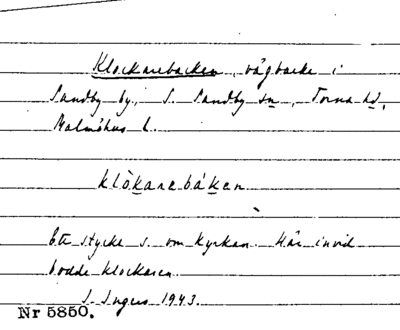 Klockarebacken, vägbacke i
Sandby by, S. Sandby sn, Torna hd,
Malmöhus l.
klòkarebáken
Ett stycke s. om kyrkan. Här invid
bodde klockaren.
I. Ingers 1943.
Nr 5850.